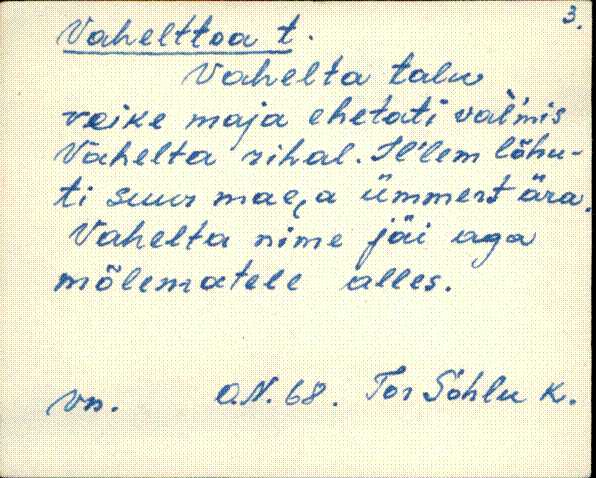 3.
Vahelttoa t.
Vahelta talu
veike maja ehetati val'mis
Vahelta sihal. Il'lem lõhu-
ti suur maea ümmert ära.
Vahelta nime jäi aga
mõlematele alles.
Vn. O.N. 68. Tor Sõhlu k.